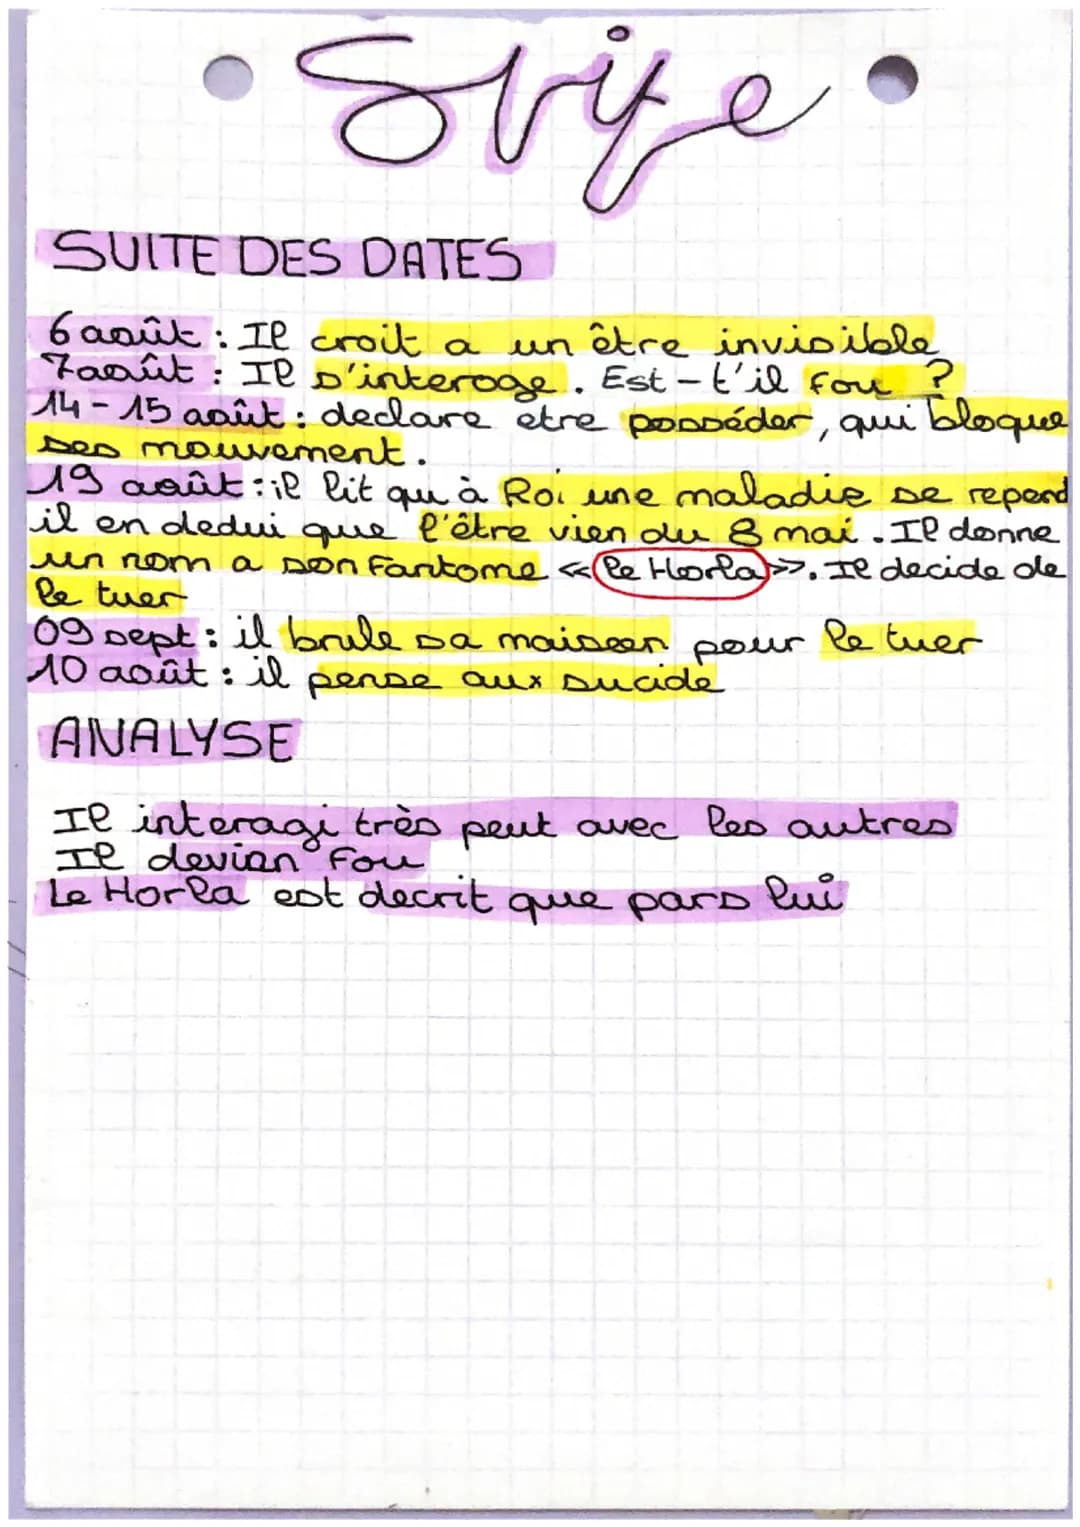 Suite
SUITE DES DATES
6 août : Il croit a un être invisible
7 août : Il s'interoge. Est-t'il fou ?
14-15 août : declare etre posséder, qui bloque
ses mouvement.
19 août : il lit qu à Roi une maladie se repend
il en dedui que l'être vien du 8 mai. Il donne
un nom a son fantome «le Horla». Il decide de
le tuer
09 sept : il brule sa maison pour le tuer
10 août : il pense aux sucide
ANALYSE
Il interagi très peut avec les autres
Il devian fou
Le Horla est decrit que pars lui